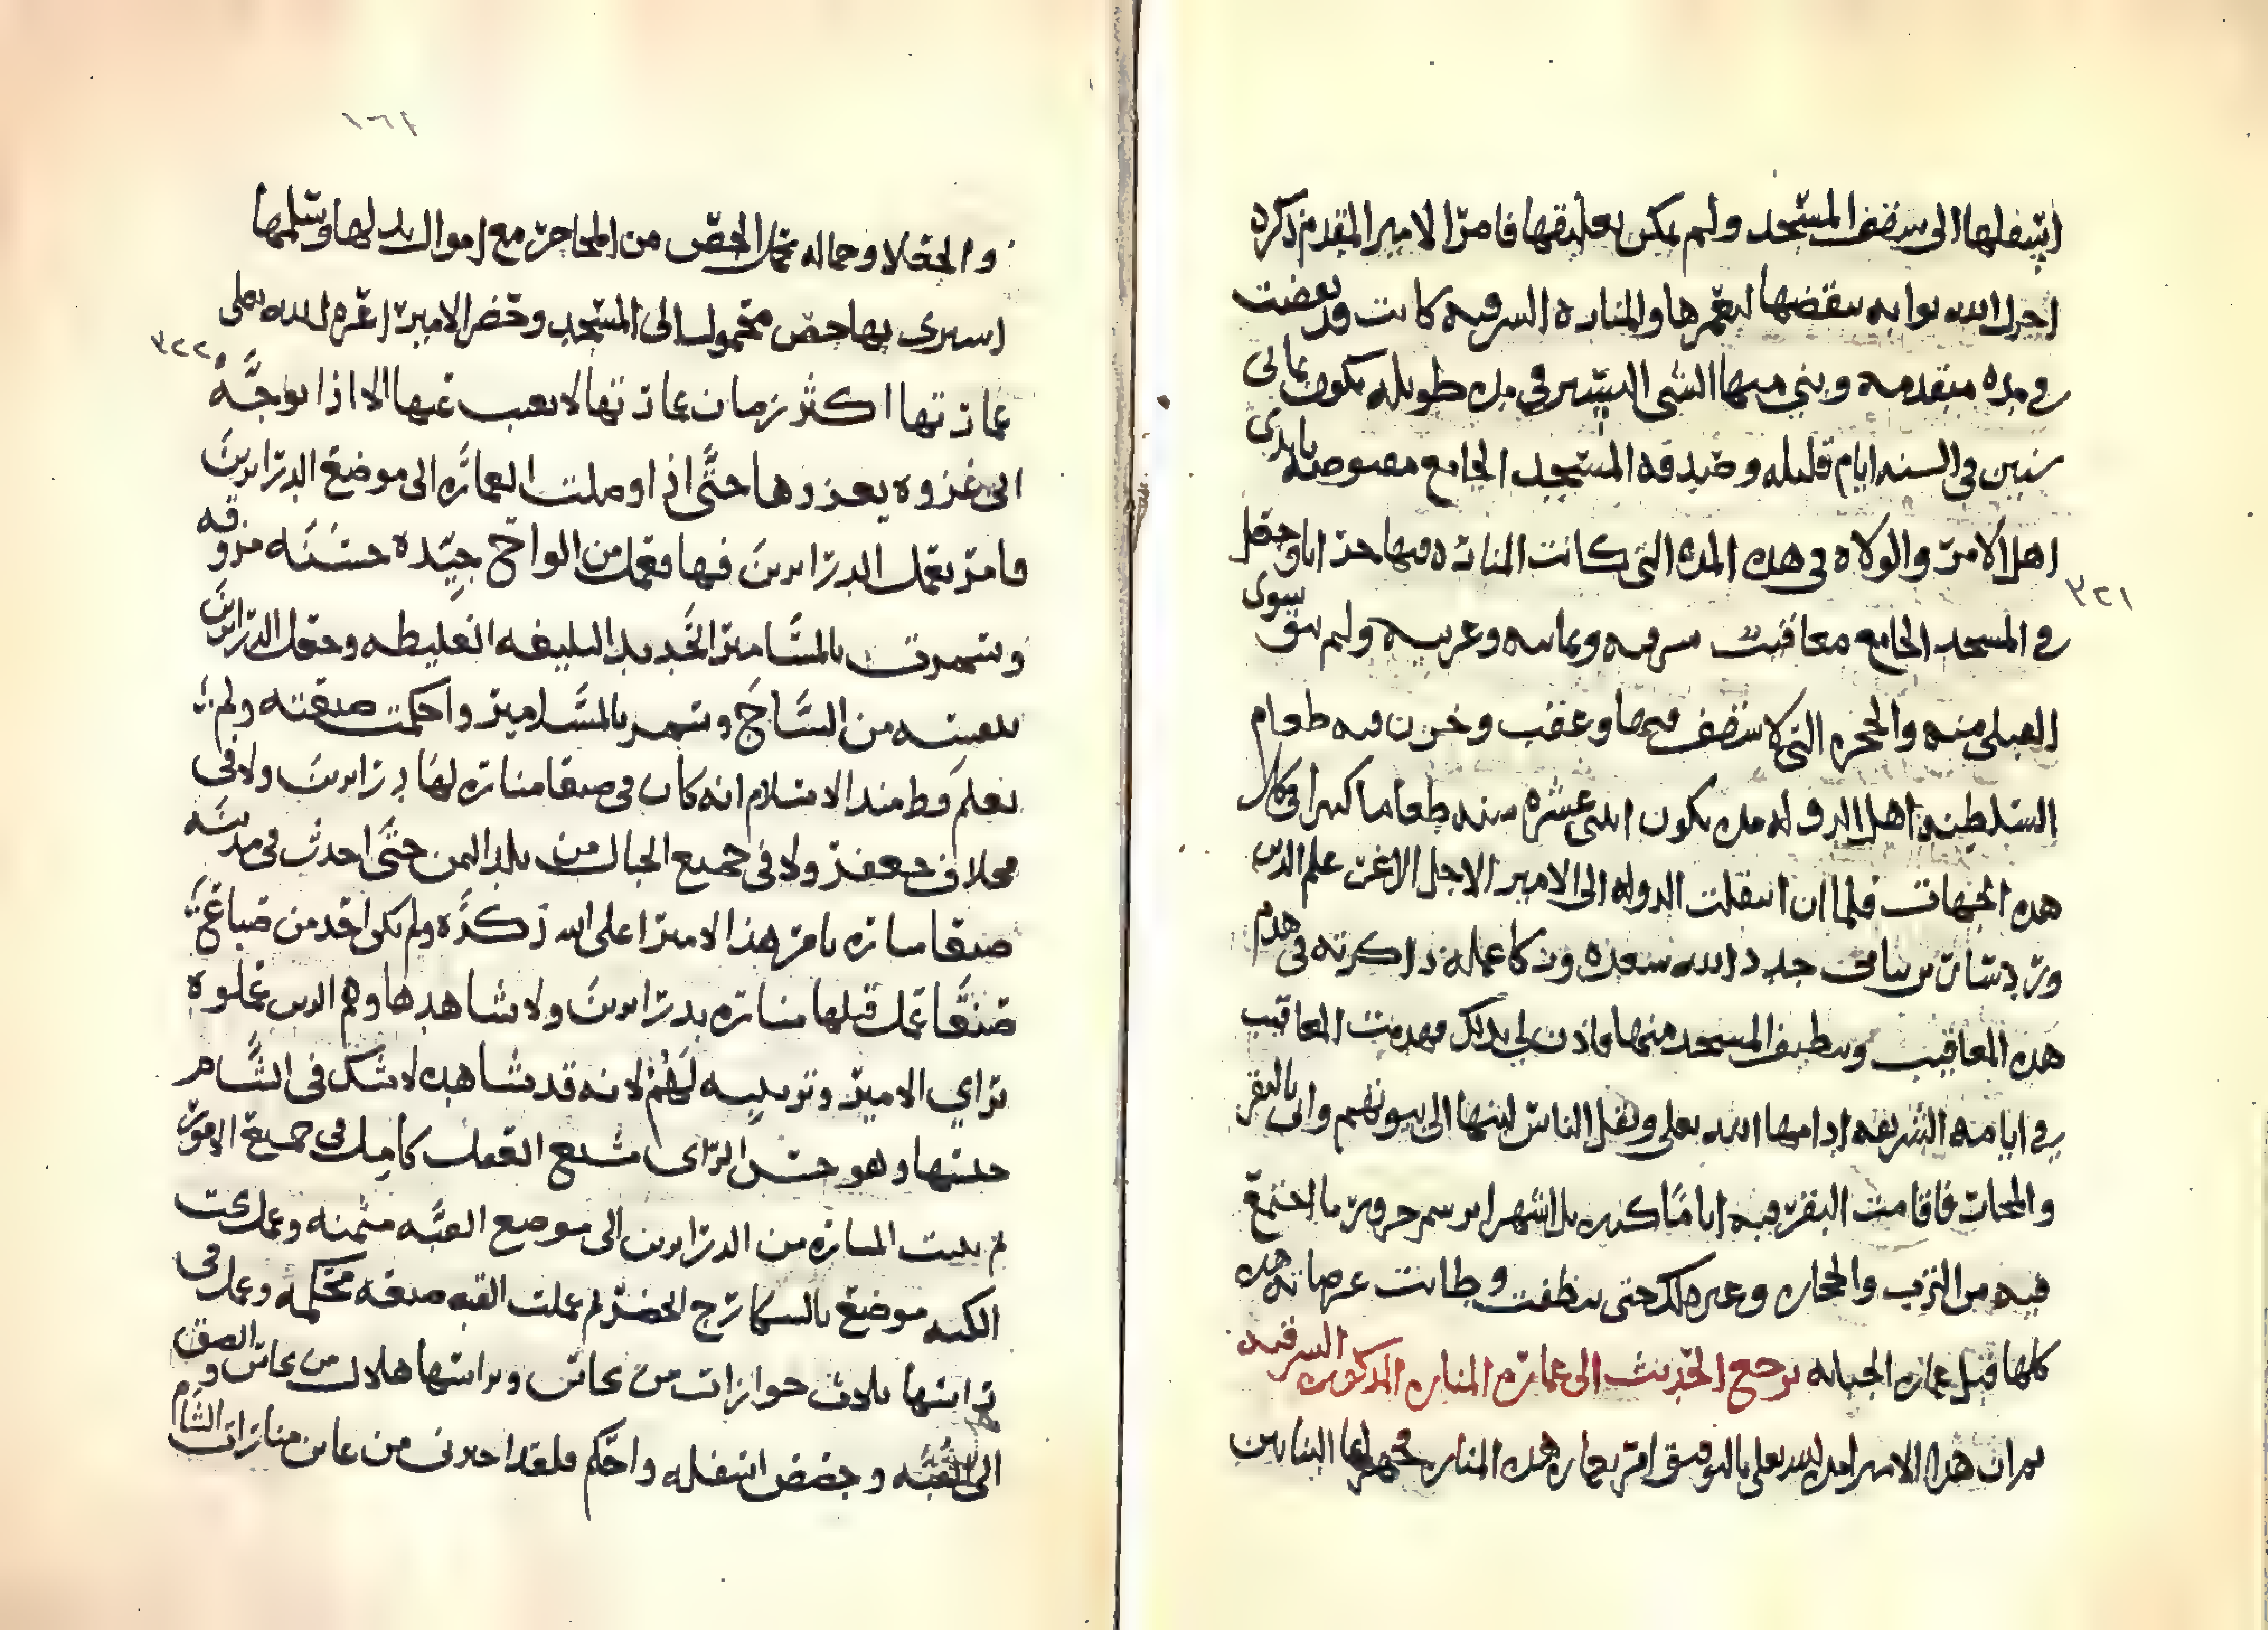 اسفلها الى سقف المسجد ولم يمكن تعليقها فامر الامير المقدم ذكره
اجزل الله ثوابه بنقضها ليعمرها والمنارة الشرقيه كانت قد نقضت
في مده متقدمه وبني منها الشي اليسير في مده طويله يكون ثماني
سنين في السنه ايام قليله وصدقه المسجد الجامع مقبوضه بايدي
اهل الامر والولاه في هذه المده التي كانت المناره فيها خرابا وجعل
في المسجد الجامع معاقب شرقيه ويمانيه وغربيه ولم يبق سوى
القبلي منه والحجره التي لا سقف فيها وعقب وخزن فيه طعام
السلطنه اهل الدوله مده يكون اثنى عشره سنه طعاما كثيرا في كل
هذه الجهات فلما ان انتقلت الدوله الى الامير الاجل الاغر علم الدين
ورد شار بن سامي جدد الله سعده وزكا عمله ذاكرته في هدم
هذه المعاقب وتنظيف المسجد منها فاذن لي بذلك فهدمت المعاقب
في ايامه الشريفه ادامها الله تعلى ونقل الناس لبنها الى بيوتهم واتى بالبقر
والمجار فاقامت البقر فيه اياما كثيره بل اشهرا برسم جرور ما اجتمع
فيه من الترب والحجاره وغير ذلك حتى نظفت وطابت عرصاته هذه
كلها قبل عماره الجبانه نرجع الحديث الى عمارة المناره المذكوره الشرقيه
ثم ان هذا الامير امده الله تعلى بالتوفيق امر بعماره هذه المناره فجمع لها البنايين
١٦٤
والجعلا وحماله تحمل الجص من المحاجر مع اموال بذلها وسلمها
اشترى بها جص محمولا الى المسجد وحضر الامير اعزه الله تعلى
عمارتها اكثر زمان عمارتها لا يغيب عنها الا اذا توجه
الى غزوه يغزوها حتى اذا وصلت العماره الى موضع الدرابزين
فامر بعمل الدرابزين فيها فعمل من الواح جيده حسنه مزوقه
وسمرت بالمسامير الحديد البليغه الغليظه وجعل الدرابزين
بعينه من الساج وسمر بالمسامير واحكمت صنعته ولم
نعلم قط منذ الاسلام انه كان في صنعا مناره لها درابزين ولا في
مخلاف جعفر ولا في جميع الجبال من بلد اليمن حتى احدث في مدينه
صنعا مناره بامر هذا الامير اعلى الله ذكره ولم يكن احد من صناع
صنعا عمل قبلها مناره بدرابزين ولا شاهدها وهم الذين عملوه
براي الامير وترتيبه لهم لانه قد شاهده لا شك في الشام
جنسها وهو حسن الراى شبع العقل كامل في جميع الامور
ثم بنيت المناره من الدرابزين الى موضع القبه مثمنه وعمل تحت
الكبه موضع بالسكارج الخضر ثم عملت القبه صنعه محكمه وعمل في
راسها ثلاث جوازات من نحاس وبراسها هلال من نحاس والصق
الى القبه وجصص اسفله واحكم فلقد اخبرني من عاين منارات الشام
٣٢١
٣٢٢